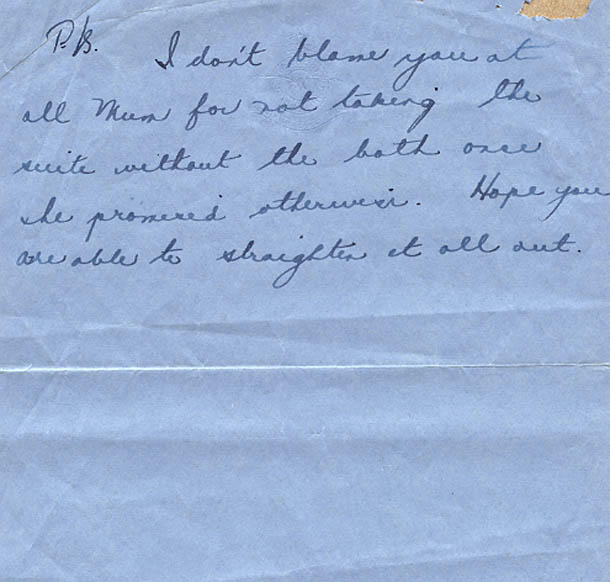 P.S. I don't blame you at
all Mum for not taking the
suite without the bath once
she promised otherwise. Hope you
are able to straighten it all out.